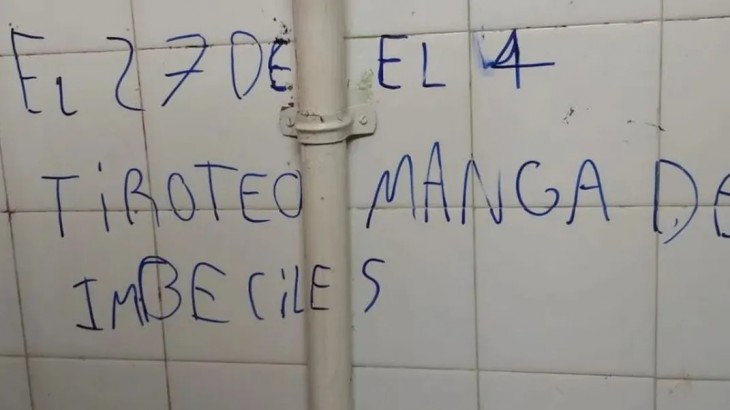 EL 27 DE EL 4
TIROTEO MANGA DE
IMBECILES